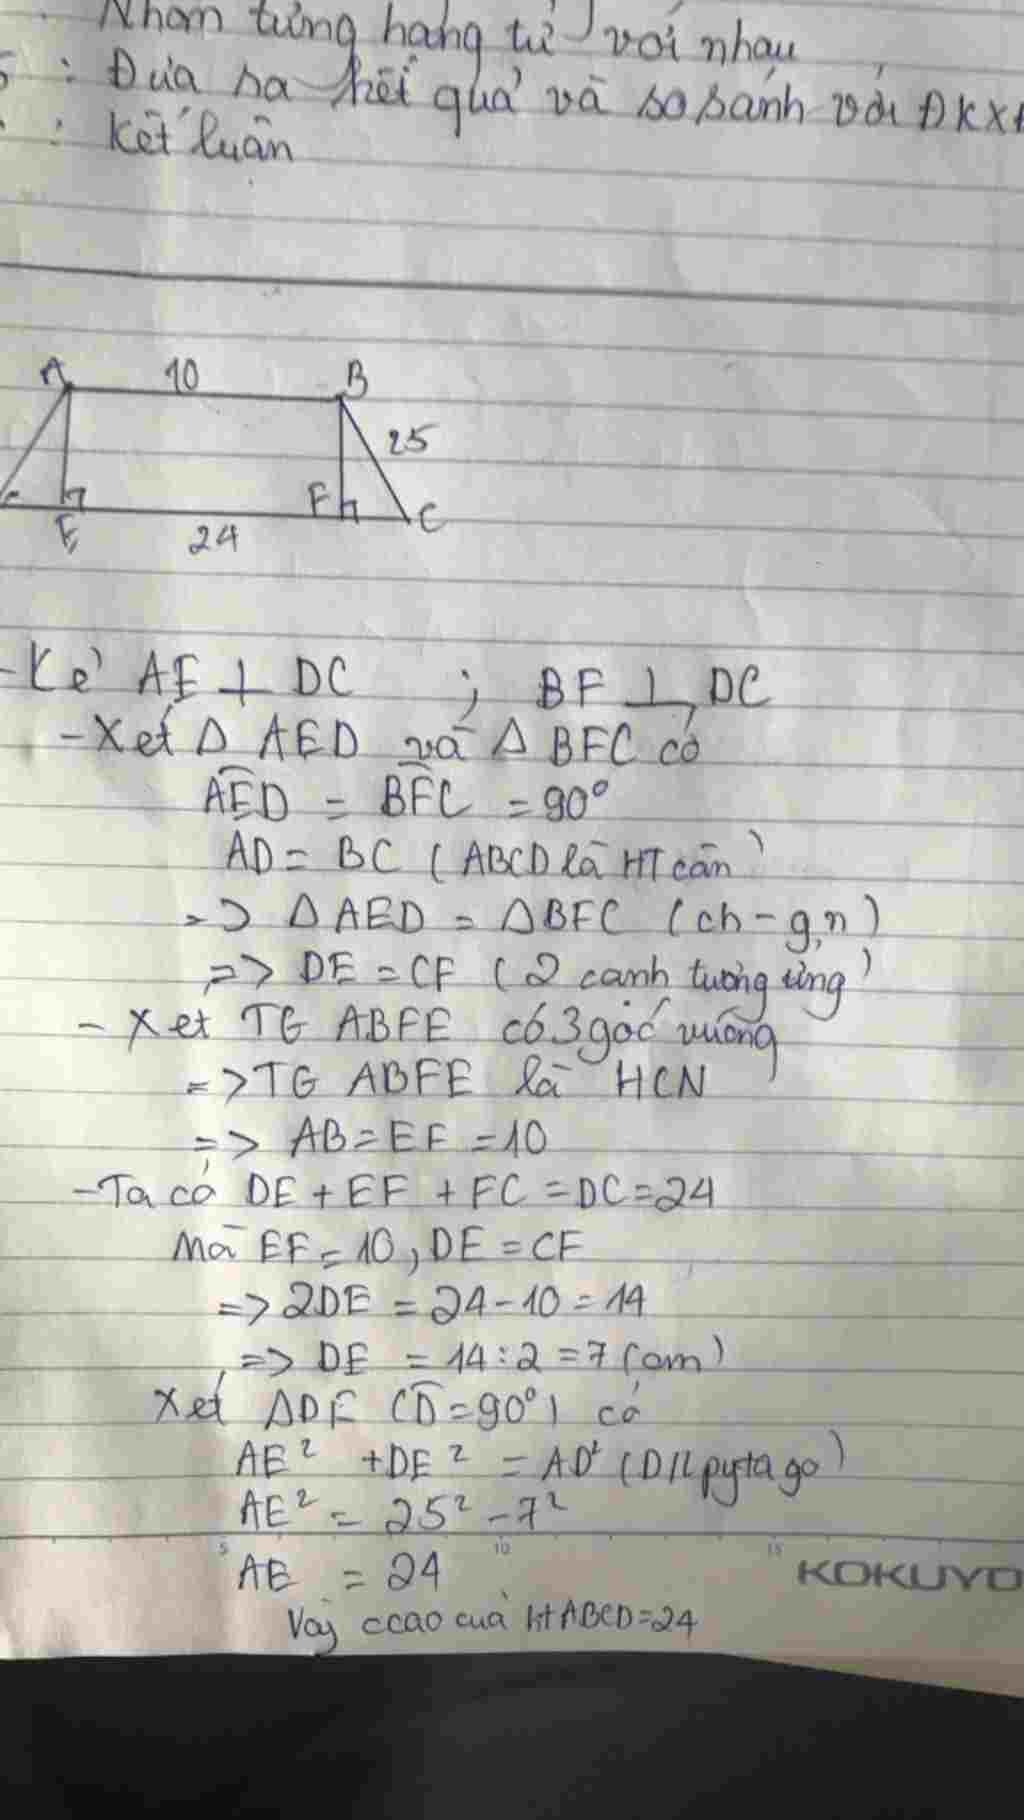 Nhóm từng hạng tử với nhau
5 : Đưa ra kết quả và so sánh với ĐKX
: Kết luận
A 10 B
25
F C
E 24
- Kẻ AE ⊥ DC ; BF ⊥ DC
- Xét Δ AED và Δ BFC có
AED = BFC = 90°
AD = BC (ABCD là HT cân)
=> Δ AED = Δ BFC (ch - g,n)
=> DE = CF (2 canh tương ứng)
- Xet TG ABFE có 3 góc vuông
=> TG ABFE là HCN
=> AB = EF = 10
- Ta có DE + EF + FC = DC = 24
Mà EF = 10, DE = CF
=> 2DE = 24 - 10 = 14
=> DE = 14 : 2 = 7 (cm)
Xét ΔDE (D = 90°) có
AE² + DE² = AD² (Đ/L pytago)
AE² = 25² - 7²
5 10 15
AE = 24
KOKUYO
Vậy ccao của ht ABCD = 24